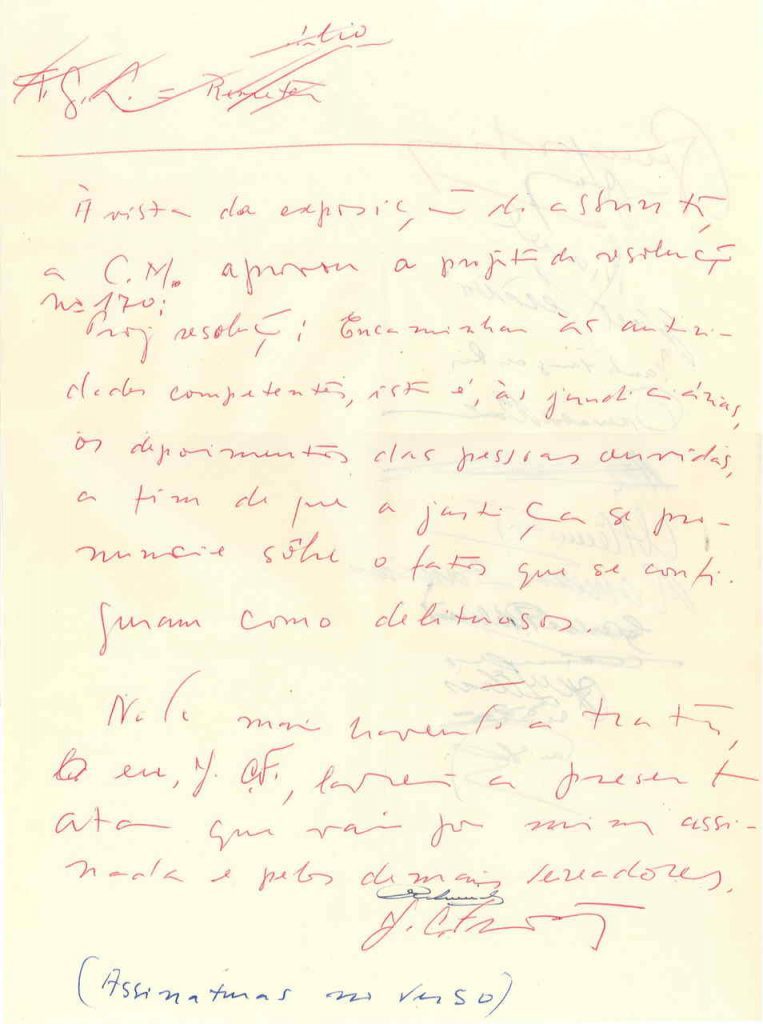 A.G.L. =
À vista da exposição do assunto,
a C.M. aprovou o projeto de resolução
nº 170:
Proj resolução: Encaminhar às autori-
dades competentes, isto é, às judiciárias,
os depoimentos das pessoas ouvidas,
a fim de que a justiça se pro-
nuncie sôbre o fatos que se confi-
guram como delituosos.
Nada mais havendo a tratar,
eu, J. C.F., lavrei a presente
ata que vai por mim assi-
nada e pelos demais vereadores.
(Assinaturas no verso)